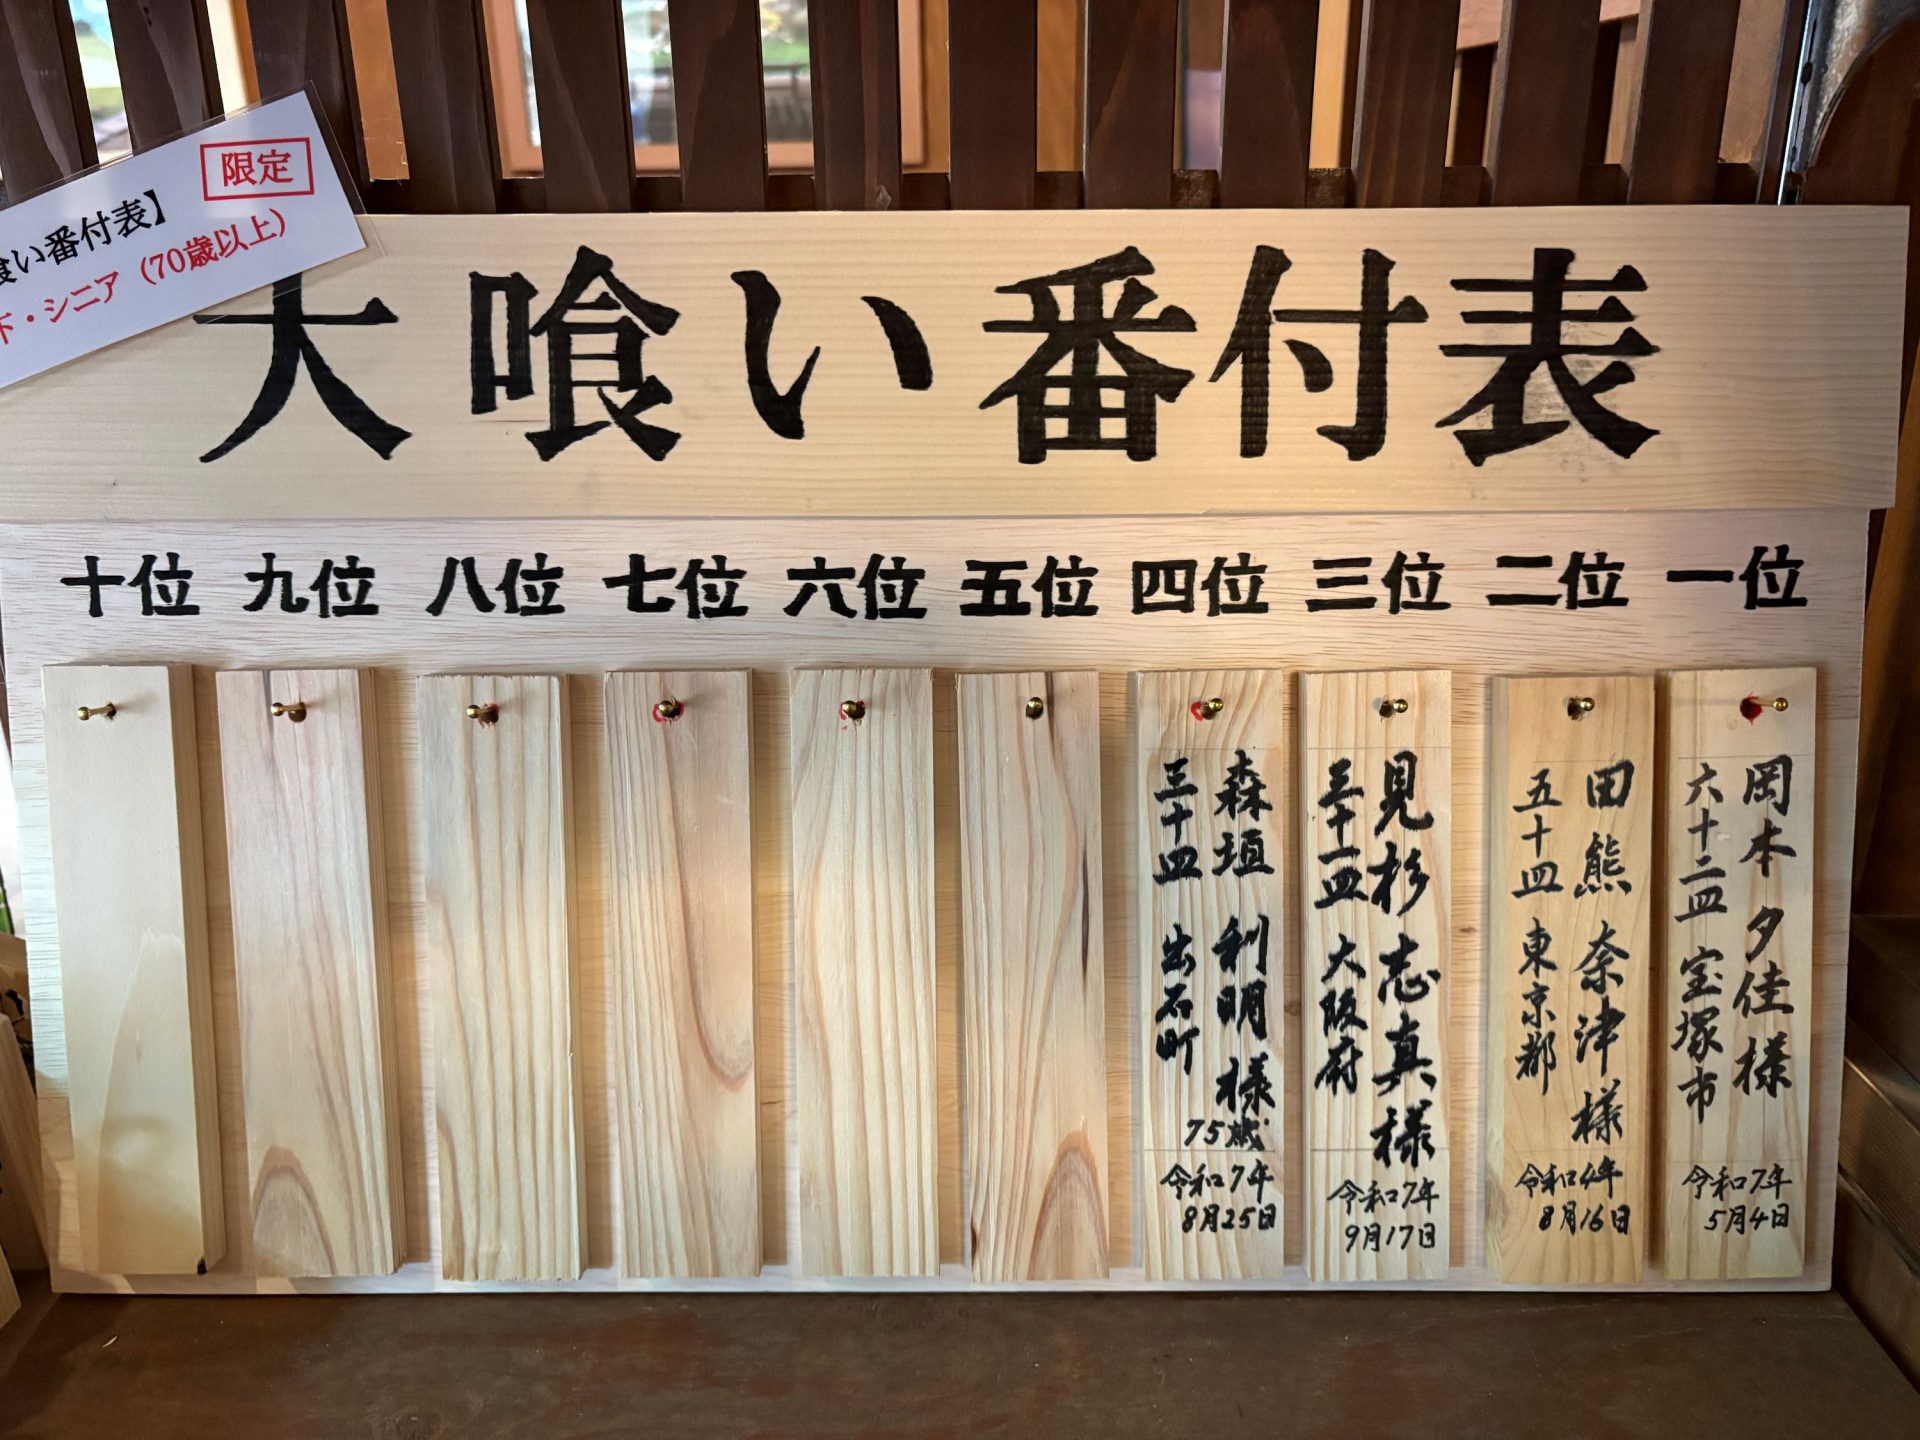 限定
喰い番付表】
・シニア（70歳以上）
大喰い番付表
一位
二位
三位
四位
五位
六位
七位
八位
九位
十位
岡本 夕佳様
六十二皿 宝塚市
令和7年
5月4日
田熊 奈津様
五十皿 東京都
令和4年
8月16日
見杉 志真様
三十一皿 大阪府
令和7年
9月17日
森垣 利明様
75歳
三十皿 出石町
令和7年
8月25日